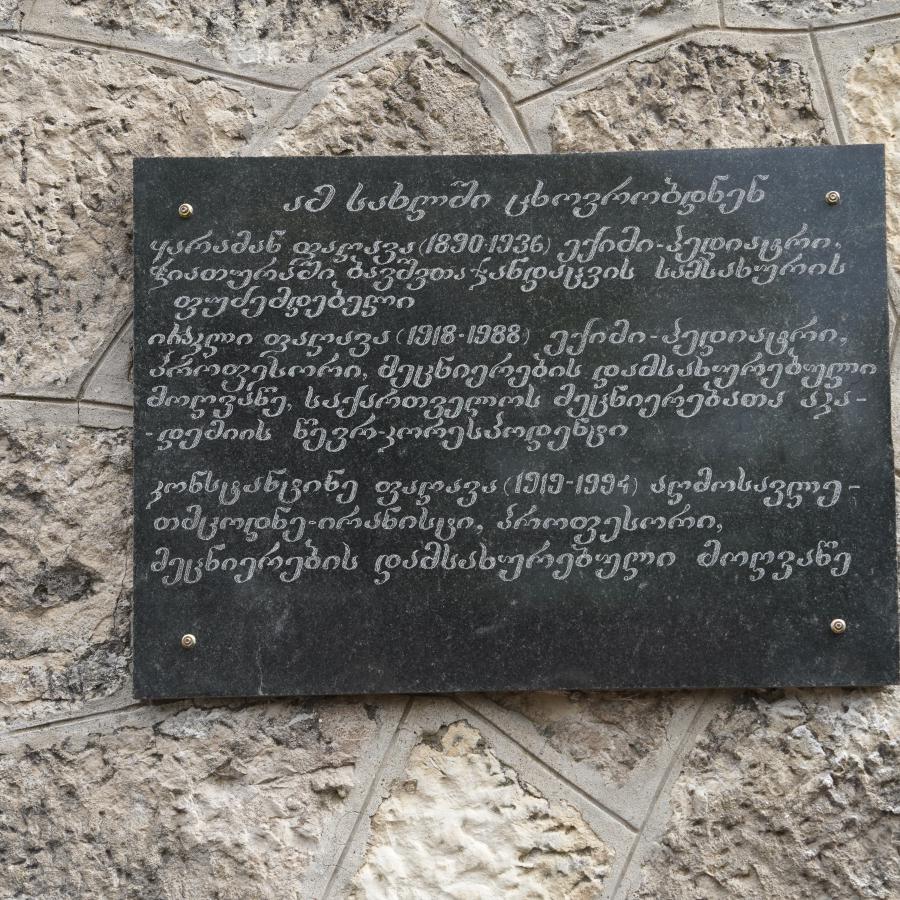 ამ სახლში ცხოვრობდნენ
ყარამან ფაღავა (1890-1936) ექიმი-პედიატრი,
ჭიათურაში ბავშვთა ჯანდაცვის სამსახურის
ფუძემდებელი
ირაკლი ფაღავა (1918-1988) ექიმი-პედიატრი,
პროფესორი, მეცნიერების დამსახურებული
მოღვაწე, საქართველოს მეცნიერებათა აკა-
-დემიის წევრ-კორესპოდენტი
კონსტანტინე ფაღავა (1919-1994) აღმოსავლე-
თმცოდნე-ირანისტი, პროფესორი,
მეცნიერების დამსახურებული მოღვაწე